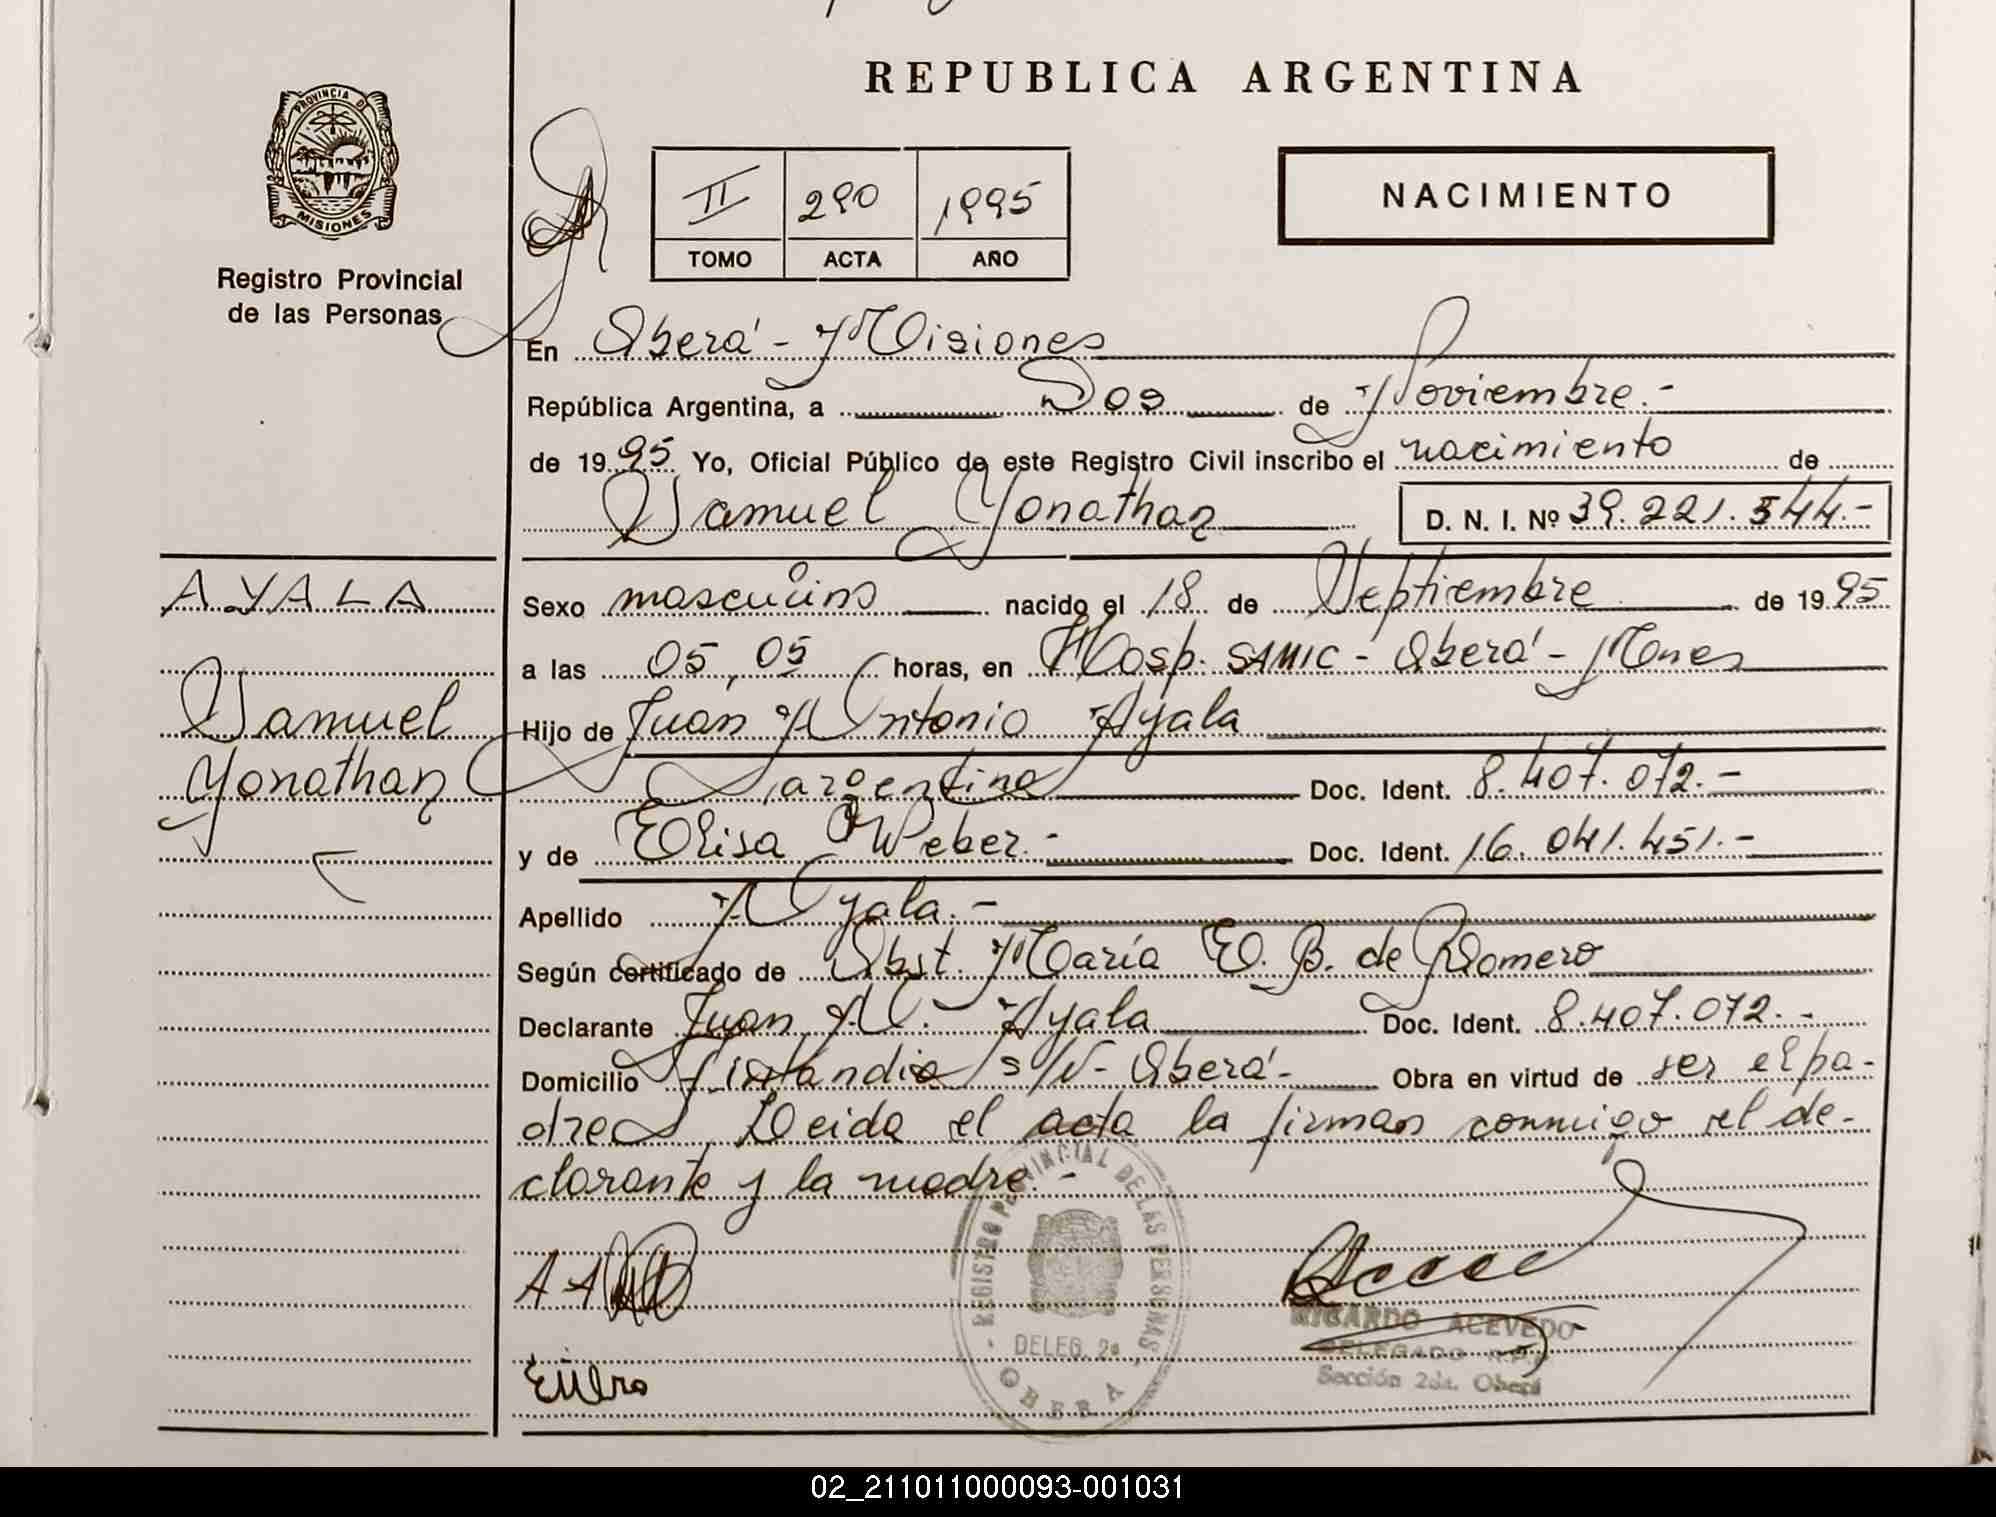 REPUBLICA ARGENTINA
PROVINCIA DE
MISIONES
Registro Provincial
de las Personas
II 290 1995
TOMO ACTA AÑO
NACIMIENTO
En Oberá - Misiones
República Argentina, a Dos de Noviembre.-
de 1995 Yo, Oficial Público de este Registro Civil inscribo el nacimiento de
Samuel Yonathan D. N. I. Nº 39.221.544.-
AYALA
Samuel
Yonathan
Sexo masculino nacido el 18 de Septiembre de 1995
a las 05,05 horas, en Hosp. SAMIC - Oberá - Mnes
Hijo de Juan Antonio Ayala
argentina Doc. Ident. 8.407.072.-
y de Elisa Weber.- Doc. Ident. 16.041.451.-
Apellido Ayala.-
Según certificado de Obst. María E. B. de Romero
Declarante Juan A. Ayala Doc. Ident. 8.407.072.-
Domicilio Finlandia s/N - Oberá - Obra en virtud de ser el pa-
dre, Leida el acta la firman conmigo el de-
clarante y la madre.-
REGISTRO PROVINCIAL DE LAS PERSONAS
DELEG. 2ª
OBERA
RICARDO ACEVEDO
DELEGADO R.P.P.
Sección 2da. Oberá
02_211011000093-001031